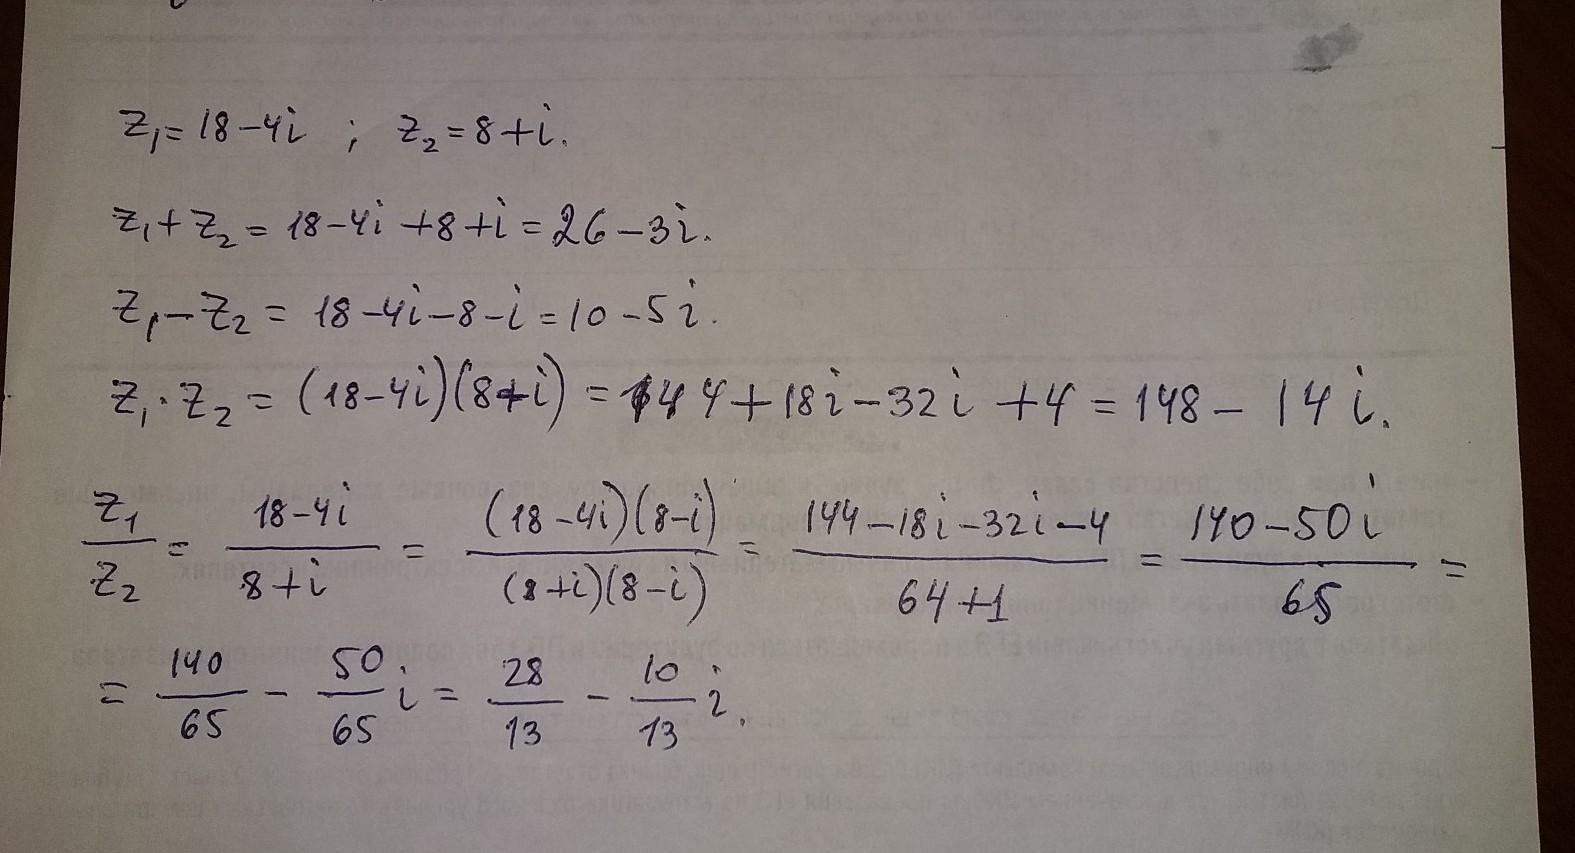 z₁ = 18 - 4i ; z₂ = 8 + i.
z₁ + z₂ = 18 - 4i + 8 + i = 26 - 3i.
z₁ - z₂ = 18 - 4i - 8 - i = 10 - 5i.
z₁ · z₂ = (18 - 4i)(8 + i) = 144 + 18i - 32i + 4 = 148 - 14i.
z₁/z₂ = (18 - 4i)/(8 + i) = ((18 - 4i)(8 - i))/((8 + i)(8 - i)) = (144 - 18i - 32i - 4)/(64 + 1) = (140 - 50i)/65 =
= 140/65 - 50/65 i = 28/13 - 10/13 i.